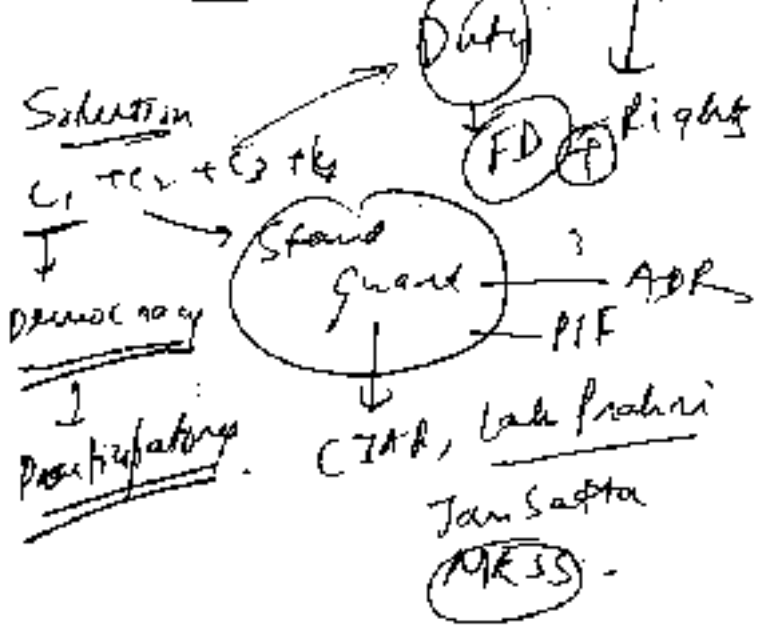 Duty
Solution
FD P Right
C1 + C2 + C3 + C4
Stand
guard
ADR
PIF
Democracy
Participatory
CJAR, Lok Prahri
Jan Satta
MKSS